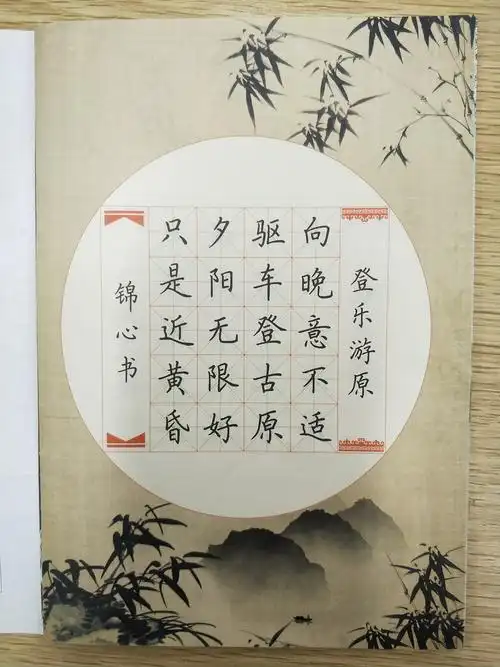 登乐游原
向晚意不适
驱车登古原
夕阳无限好
只是近黄昏
锦心书